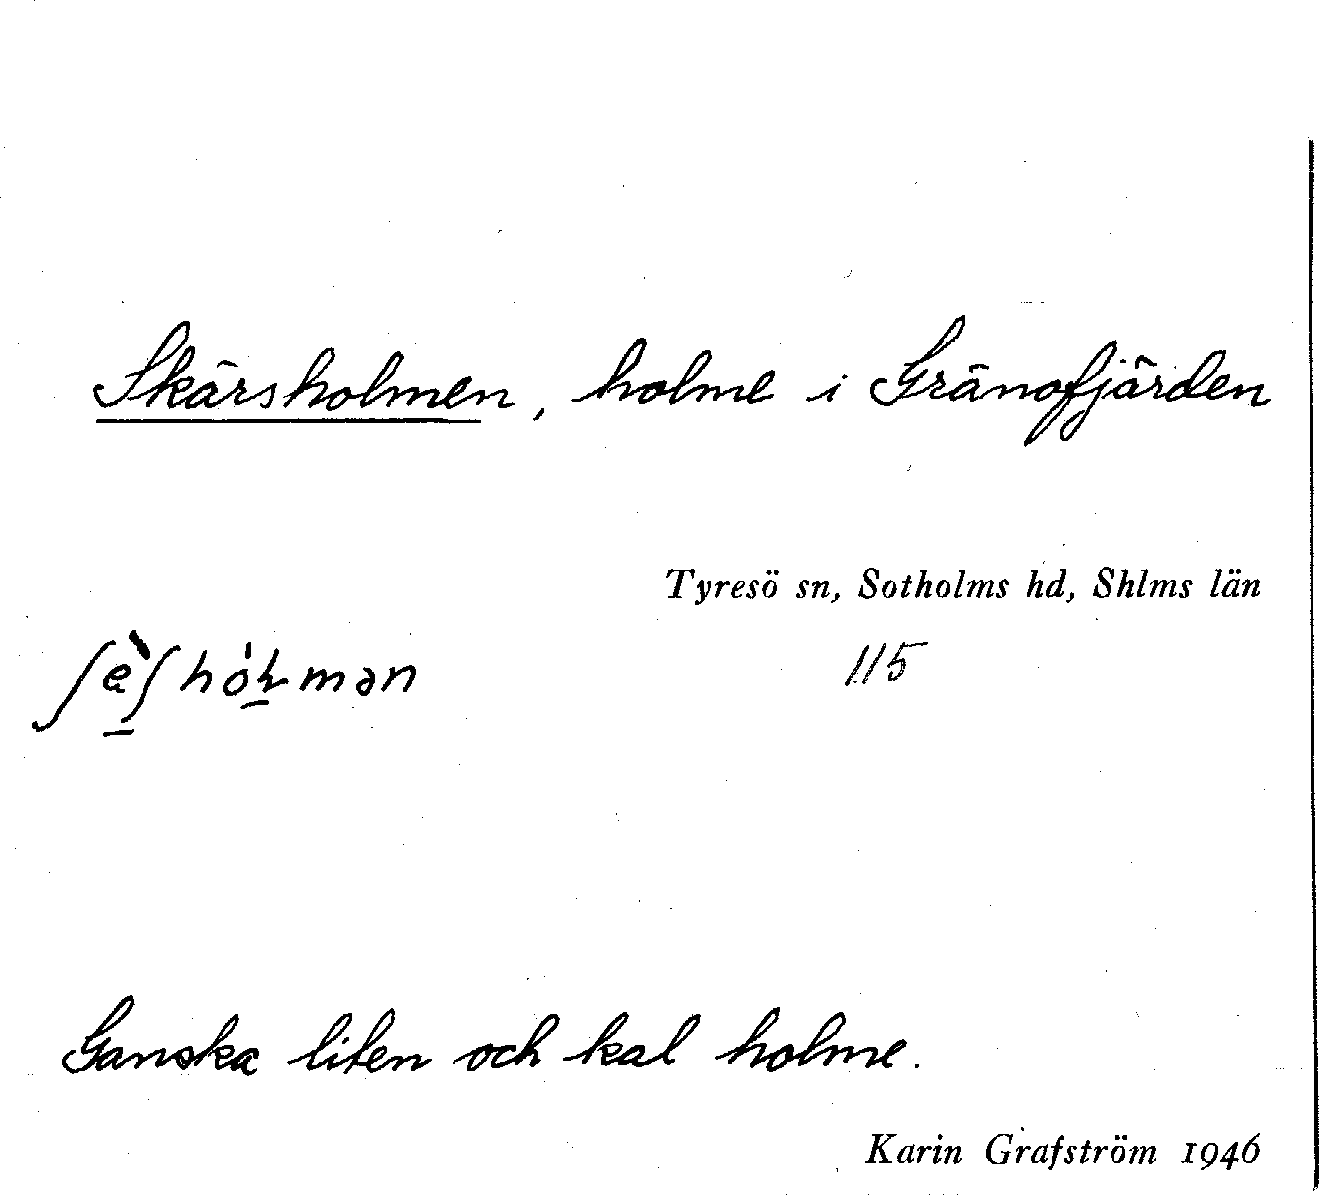 Skärsholmen, holme i Gränofjärden
Tyresö sn, Sotholms hd, Shlms län
115
Ganska liten och kal holme.
Karin Grafström 1946